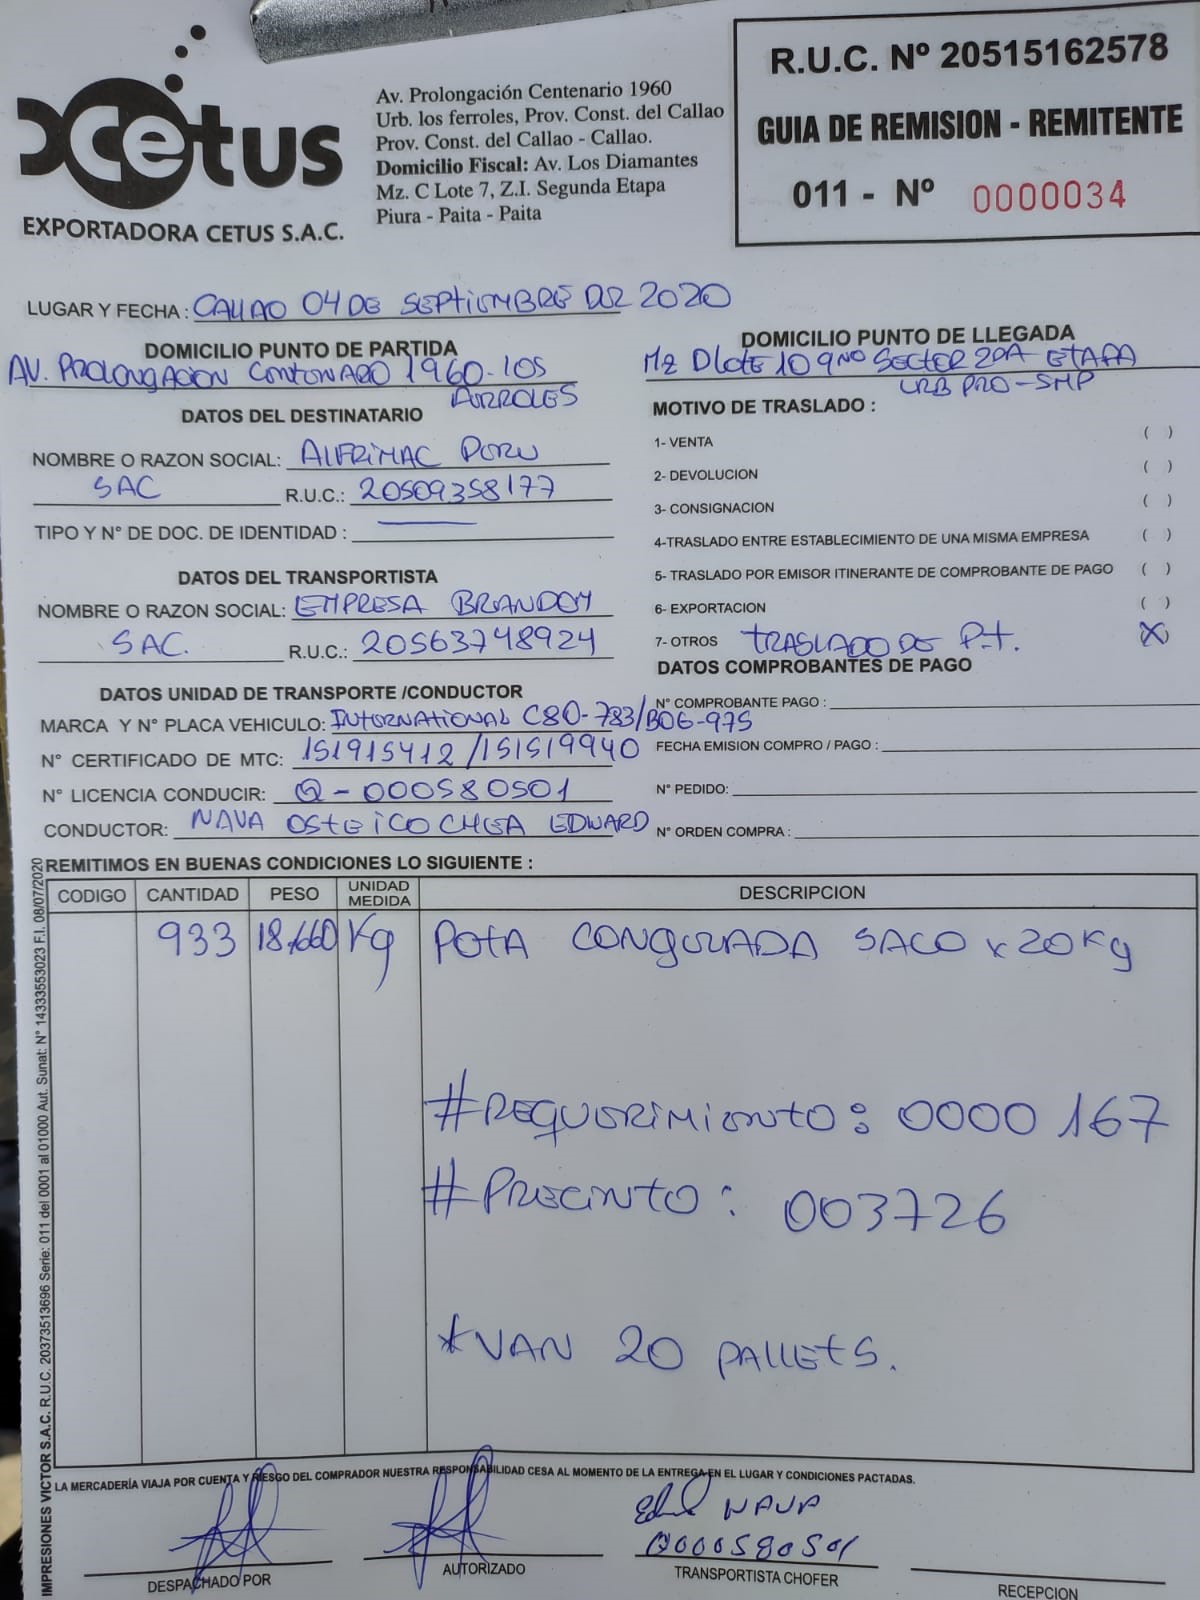 Cetus
EXPORTADORA CETUS S.A.C.
Av. Prolongación Centenario 1960
Urb. los ferroles, Prov. Const. del Callao
Prov. Const. del Callao - Callao.
Domicilio Fiscal: Av. Los Diamantes
Mz. C Lote 7, Z.I. Segunda Etapa
Piura - Paita - Paita
R.U.C. Nº 20515162578
GUIA DE REMISION - REMITENTE
011 - Nº 0000034
LUGAR Y FECHA : CALLAO 04 DE SEPTIEMBRE DEL 2020
DOMICILIO PUNTO DE PARTIDA
AV. PROLONGACION CENTENARO 1960-LOS
FERROLES
DOMICILIO PUNTO DE LLEGADA
Mz D lote 10 9no SECTOR 2DA ETAPA
URB PRO-SMP
DATOS DEL DESTINATARIO
NOMBRE O RAZON SOCIAL: ALFRIMAC PERU
SAC R.U.C.: 20509358177
TIPO Y N° DE DOC. DE IDENTIDAD :
DATOS DEL TRANSPORTISTA
NOMBRE O RAZON SOCIAL: EMPRESA BRANDOM
SAC. R.U.C.: 20563748924
DATOS UNIDAD DE TRANSPORTE /CONDUCTOR
MARCA Y N° PLACA VEHICULO: INTERNATIONAL C80-783/B06-975
N° CERTIFICADO DE MTC: 151915412 /151519940
N° LICENCIA CONDUCIR: Q-000580501
CONDUCTOR: NAVA EDWARD
MOTIVO DE TRASLADO :
1- VENTA ( )
2- DEVOLUCION ( )
3- CONSIGNACION ( )
4-TRASLADO ENTRE ESTABLECIMIENTO DE UNA MISMA EMPRESA ( )
5- TRASLADO POR EMISOR ITINERANTE DE COMPROBANTE DE PAGO ( )
6- EXPORTACION ( )
7- OTROS TRASLADO DE P.T. (X)
DATOS COMPROBANTES DE PAGO
N° COMPROBANTE PAGO :
FECHA EMISION COMPRO / PAGO :
N° PEDIDO:
N° ORDEN COMPRA :
REMITIMOS EN BUENAS CONDICIONES LO SIGUIENTE :
CODIGO CANTIDAD PESO UNIDAD MEDIDA DESCRIPCION
933 18,660 Kg POTA CONGELADA SACO x 20 Kg
#REQUERIMIENTO: 0000167
#PRECINTO: 003726
*VAN 20 PALLETS.
LA MERCADERÍA VIAJA POR CUENTA Y RIESGO DEL COMPRADOR NUESTRA RESPONSABILIDAD CESA AL MOMENTO DE LA ENTREGA EN EL LUGAR Y CONDICIONES PACTADAS.
NAVA
Q000580501
DESPACHADO POR
AUTORIZADO
TRANSPORTISTA CHOFER
RECEPCION
IMPRESIONES VICTOR S.A.C. R.U.C. 20373513696 Serie: 011 del 0001 al 01000 Aut. Sunat: N° 14333553023 F.I. 08/07/2020